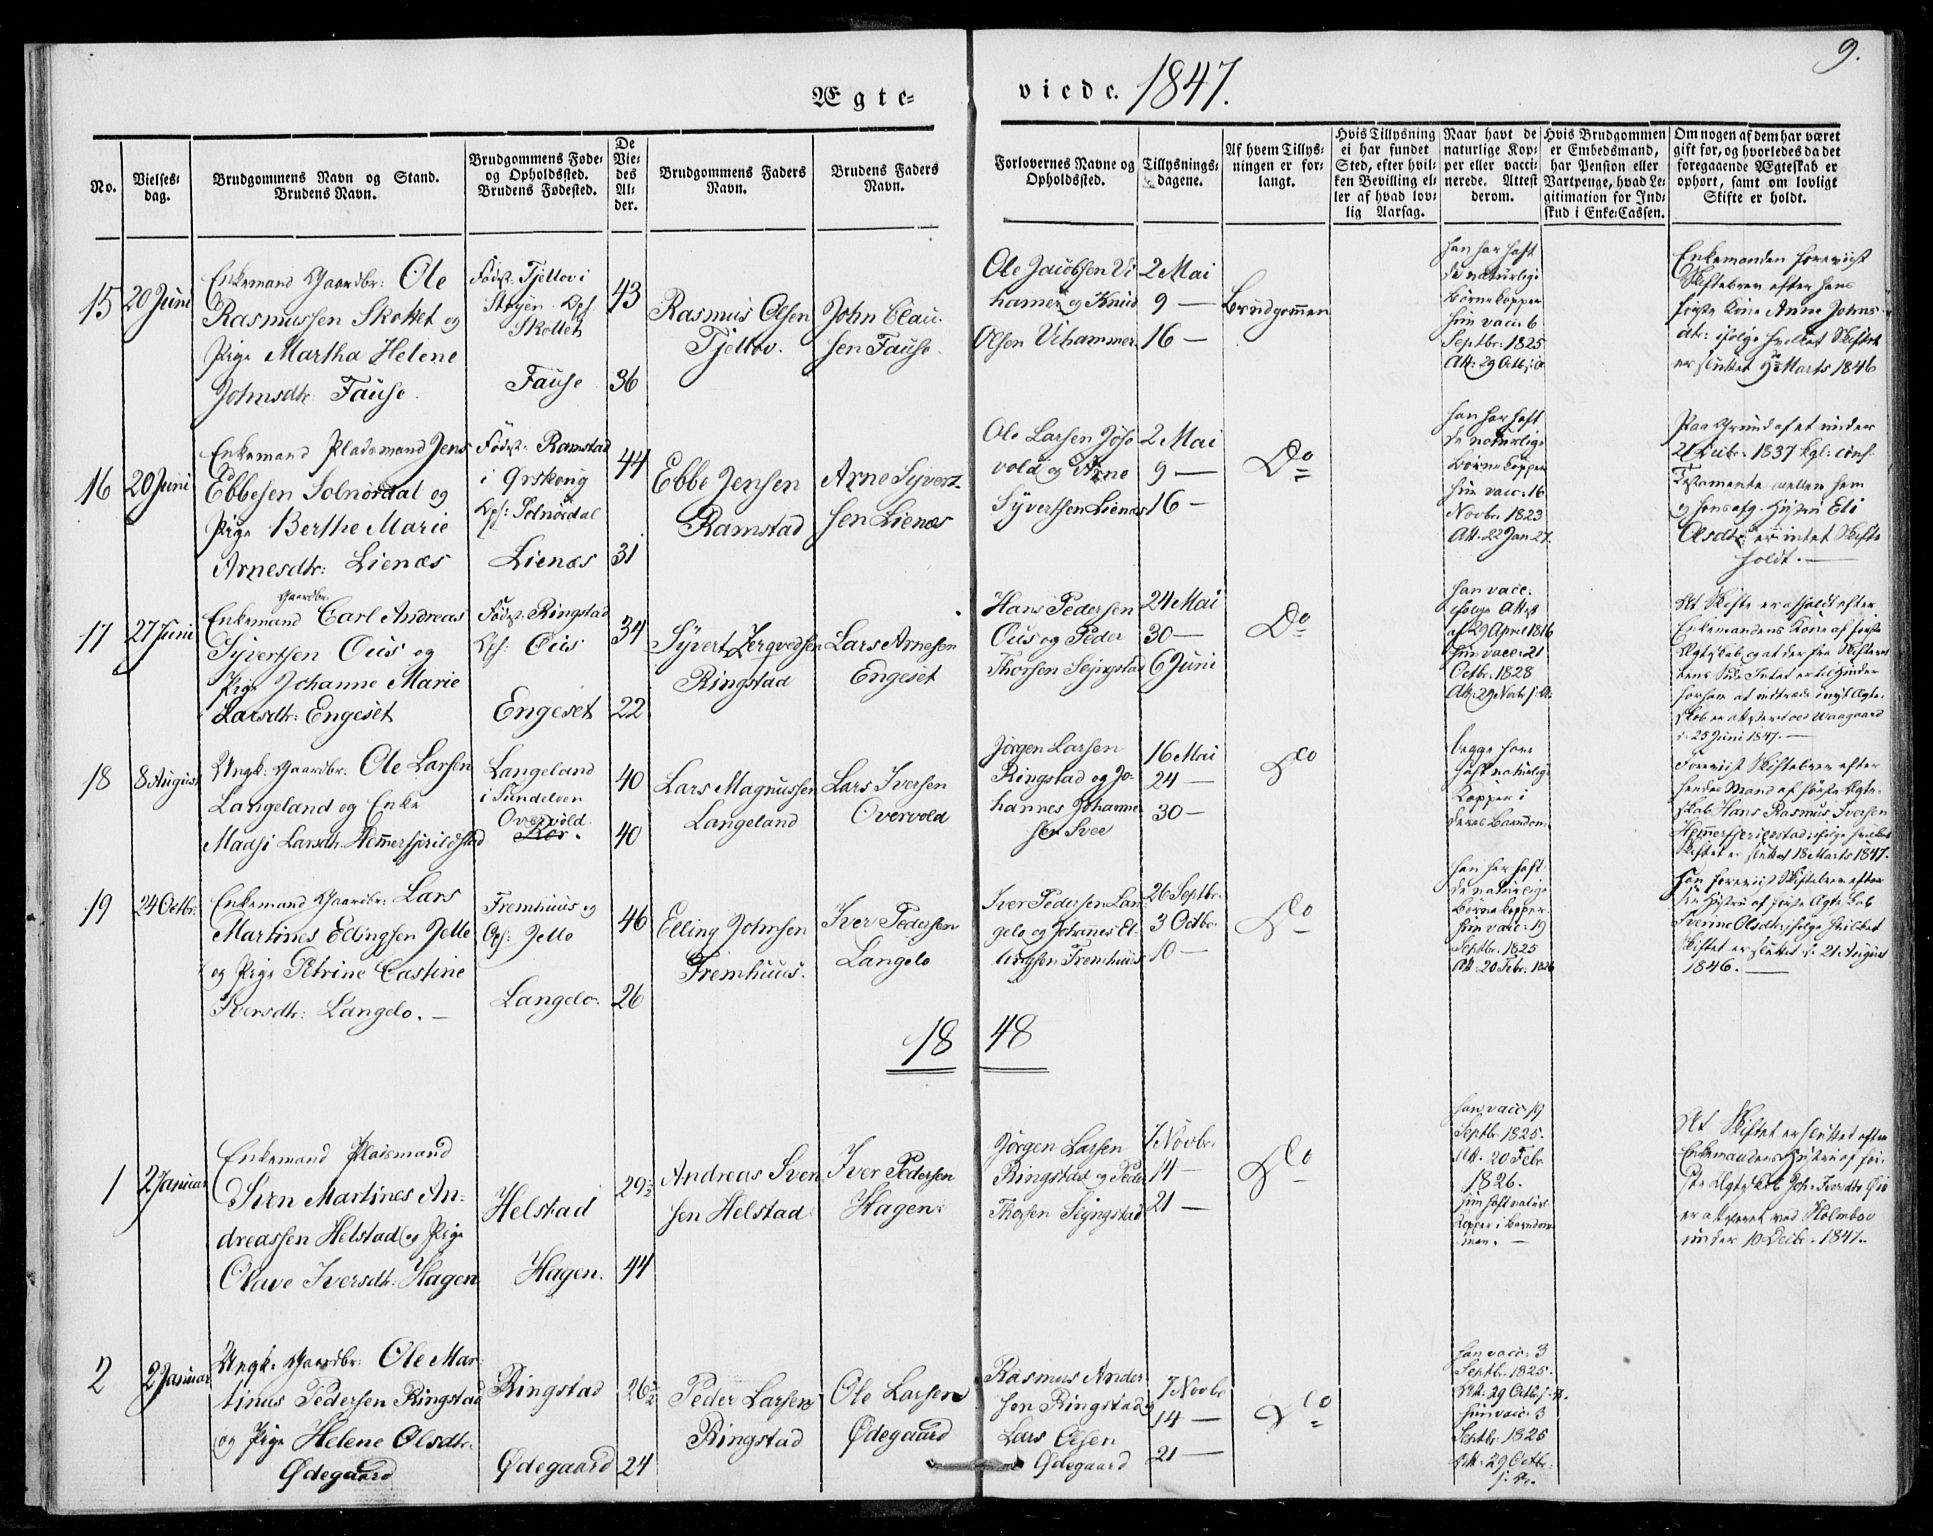 9.
Ægte- viede. 1847.
No.
Vielses-
dag.
Brudgommens Navn og Stand.
Brudens Navn.
Brudgommens Føde-
og Opholdssted.
Brudens Fødested.
De
Vie-
des
Al-
der.
Brudgommens Faders
Navn.
Brudens Faders
Navn.
Forlovernes Navne og
Opholdssted.
Tillysnings-
dagene.
Af hvem Tillys-
ningen er for-
langt.
Hvis Tillysning
ei har fundet
Sted, efter hvil-
ken Bevilling el-
ler af hvad lov-
lig Aarsag.
Naar havt de
naturlige Kop-
per eller vacci-
nerede. Attest
derom.
Hvis Brudgommen
er Embedsmand,
har Pension eller
Vartpenge, hvad Le-
gitimation for Ind-
skud i Enke-Cassen.
Om nogen af dem har været
gift før, og hvorledes da det
foregaaende Ægteskab er
ophørt, samt om lovligt
Skifte er holdt.
15
20 Juni
Enkemand Gaardbr: Ole
Rasmussen Skottet og
Pige Martha Helene
Johnsdtr: Fause.
Fødst: Tjellov i
Skottet
Fause
43
36
Rasmus Olsen
Tjellov.
John Clau-
sen Fause.
Ole Jacobsen Vi
hamer og Knud
Olsen Vihammer.
2 Mai
9 —
16 —
Brudgommen
han har haft
de naturlige
Børnekopper
hun vacc: 6
Septbr: 1825
Att: 29 Octb:
Enkemanden foreviist
Skiftebrev efter hans
første Kone Anne Johns-
dtr: ifølge hvilket Skiftet
er sluttet 9de Marts 1846
16
20 Juni
Enkemand Pladsmand Jens
Ebbesen Solnørdal og
Pige Berthe Marie
Arnesdtr: Lienæs
Fødst: Ramstad
i Ørskoug
Opf: Solnørdal
Lienæs
44
31
Ebbe Jensen
Ramstad
Arne Syvert-
sen Lienæs
Ole Larsen Jøse
vold og Arne
Syvertsen Lienæs
2 Mai
9 —
16 —
Do
han har haft
de naturlige
Børnekopper
hun vacc: 16
Novbr: 1823
Att: 22 Jan 27.
Paa Grund af et under
21 Decbr: 1837 kgl: conf.
Testamente mellem ham
og hans afg: Hustru Eli
Olsdtr: er intet Skifte
holdt. —
17
27 Juni
Gaardbr:
Enkemand Carl Andreas
Syvertsen Ous og
Pige Johanne Marie
Larsdtr: Engeset
Fødst: Ringstad
Opf: Ous
Engeset
34
22
Syvert Zergvedsen
Ringstad
Lars Arnesen
Engeset
Hans Pedersen
Ous og Peder
Thorsen
24 Mai
30 —
6 Juni
Do
han vacc:
ifølge Attest
af 29 April 1816
hun vacc: 21
Octbr: 1828
At Skifte er afholdt efter
Enkemandens Kone af første
Ægteskab, og at der fra Skifteret
tens Side Intet er til Hinder
for ham at indtræde i nyt Ægte-
skab er attesteret ved Waagaard
d: 25 Juni 1847. —
18
8 August
Ungk: Gaardbr: Ole Larsen
Langeland og Enke
Madsi Larsdtr:
Langeland
i Sundelven
Overvold.
40
40
Lars Magnussen
Langeland
Lars Iversen
Overvold
Jørgen Larsen
Ringstad og Jo-
hannes Johanne
sen Svee
16 Mai
24 —
30 —
Do
begge have
haft naturlige
Kopper i
deres Barndom.
Foreviist Skiftebrev efter
hendes Mand af første Ægte-
skab Hans Rasmus Iversen
ifølge hvilket
Skiftet er sluttet 18 Marts 1847.
19
24 Octbr:
Enkemand Gaardbr: Lars
Martines Ellingsen Jelle
og Pige Petrine Castine
Iversdtr: Langelo. —
Fremhuus og
Opf: Jelle
Langelo.
46
26
Elling Johnsen
Fremhuus.
Iver Pedersen
Langelo
Iver Pedersen Lan
gelo og Johanes El-
lingsen Fremhuus
26 Septbr:
3 Octbr:
10 —
Do
han har haft
de naturlige
Børnekopper.
hun vacc: 19
Septbr: 1825
Att: 20 Febr: 1826
Han foreviist Skiftebrev efter
sin Hustru af første Ægteskab
Iverine Olsdtr, ifølge hvilket
Skiftet er sluttet d: 21 August
1846. —
18 48
1
2 Januar
Enkemand Pladsmand
Sven Martines An-
dreassen Helstad og Pige
Olave Iversdtr: Hagen
Helstad
Hagen.
29½
44
Andreas Sven
sen Helstad
Iver Pedersen
Hagen
Jørgen Larsen
Ringstad og Peder
Thorsen
7 Novbr.
14 —
21 —
Do
han vacc: 19
Septbr: 1825.
Att: 20 Febr
1826.
hun haft natur
Kopper i Barndom
men. —
At Skiftet er sluttet efter
Enkemandens Hustru af før-
ste Ægteskab
er attesteret ved Holmboe
under 10 Decbr: 1847.
2
2 Januar
Ungk: Gaardbr: Ole Mar-
tinus Pedersen Ringstad
og Pige Helene Olsdtr:
Ødegaard
Ringstad
Ødegaard
26½
24
Peder Larsen
Ringstad
Ole Larsen
Ødegaard
Rasmus Ander
sen Ringstad og
Lars Olsen
Ødegaard
7 Novbr
14 —
21 —
Do
han vacc: 3
Septbr: 1825.
Att: 29 Octb:
hun vacc: 3
Septbr: 1825
Att: 29 Octbr: